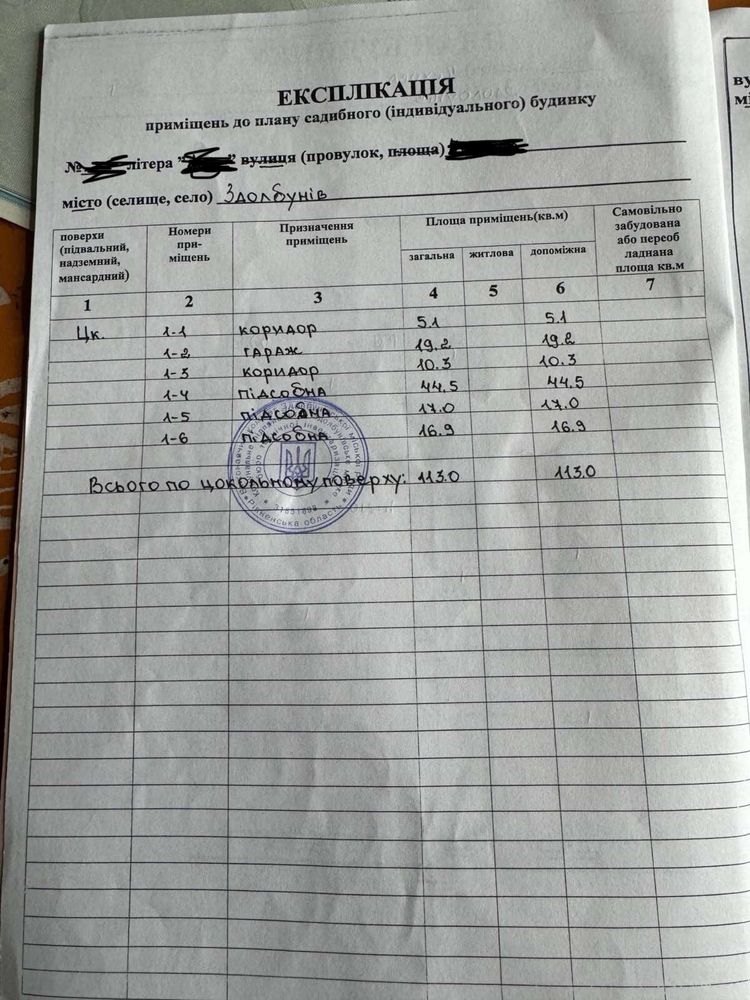 ЕКСПЛІКАЦІЯ
приміщень до плану садибного (індивідуального) будинку
№ літера " " вулиця (провулок, площа)
місто (селище, село) Здолбунів
поверхи (підвальний, надземний, мансардний) Номери при- міщень Призначення приміщень Площа приміщень(кв.м) загальна житлова допоміжна Самовільно забудована або переоб ладнана площа кв.м
1 2 3 4 5 6 7
Цк. 1-1 коридор 5.1 5.1
1-2 гараж 19.2 19.2
1-3 коридор 10.3 10.3
1-4 підсобна 44.5 44.5
1-5 підсобна 17.0 17.0
1-6 підсобна 16.9 16.9
Всього по цокольному поверху: 113.0 113.0
Рівненська область
ву
мі